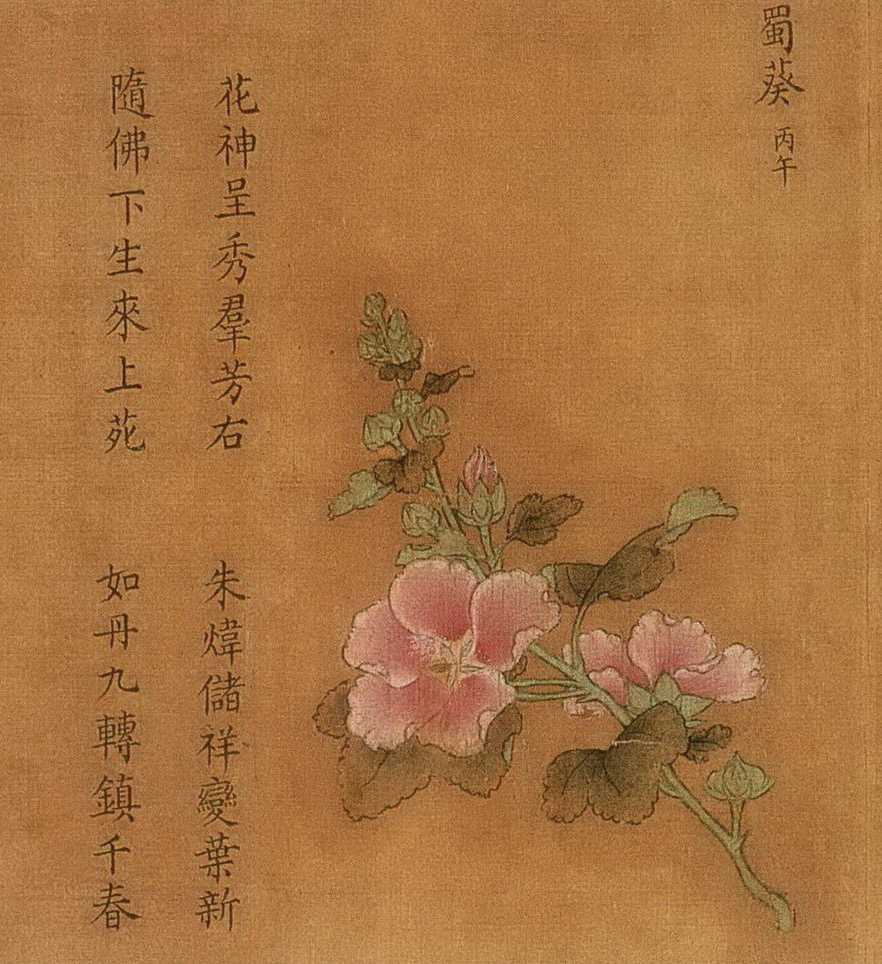 蜀葵 丙午
花神呈秀羣芳右 朱煒儲祥變葉新
隨佛下生來上苑 如丹九轉鎮千春